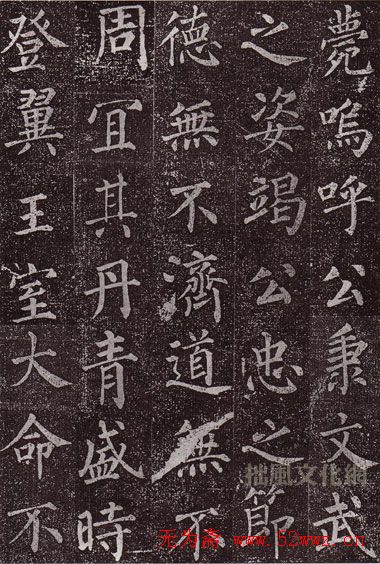 薨嗚呼公秉文武
之姿竭公忠之節
德無不濟道無不
周宜其丹青盛時
登翼王室大命不
拙風文化網
无为斋 www.52wwz.cn